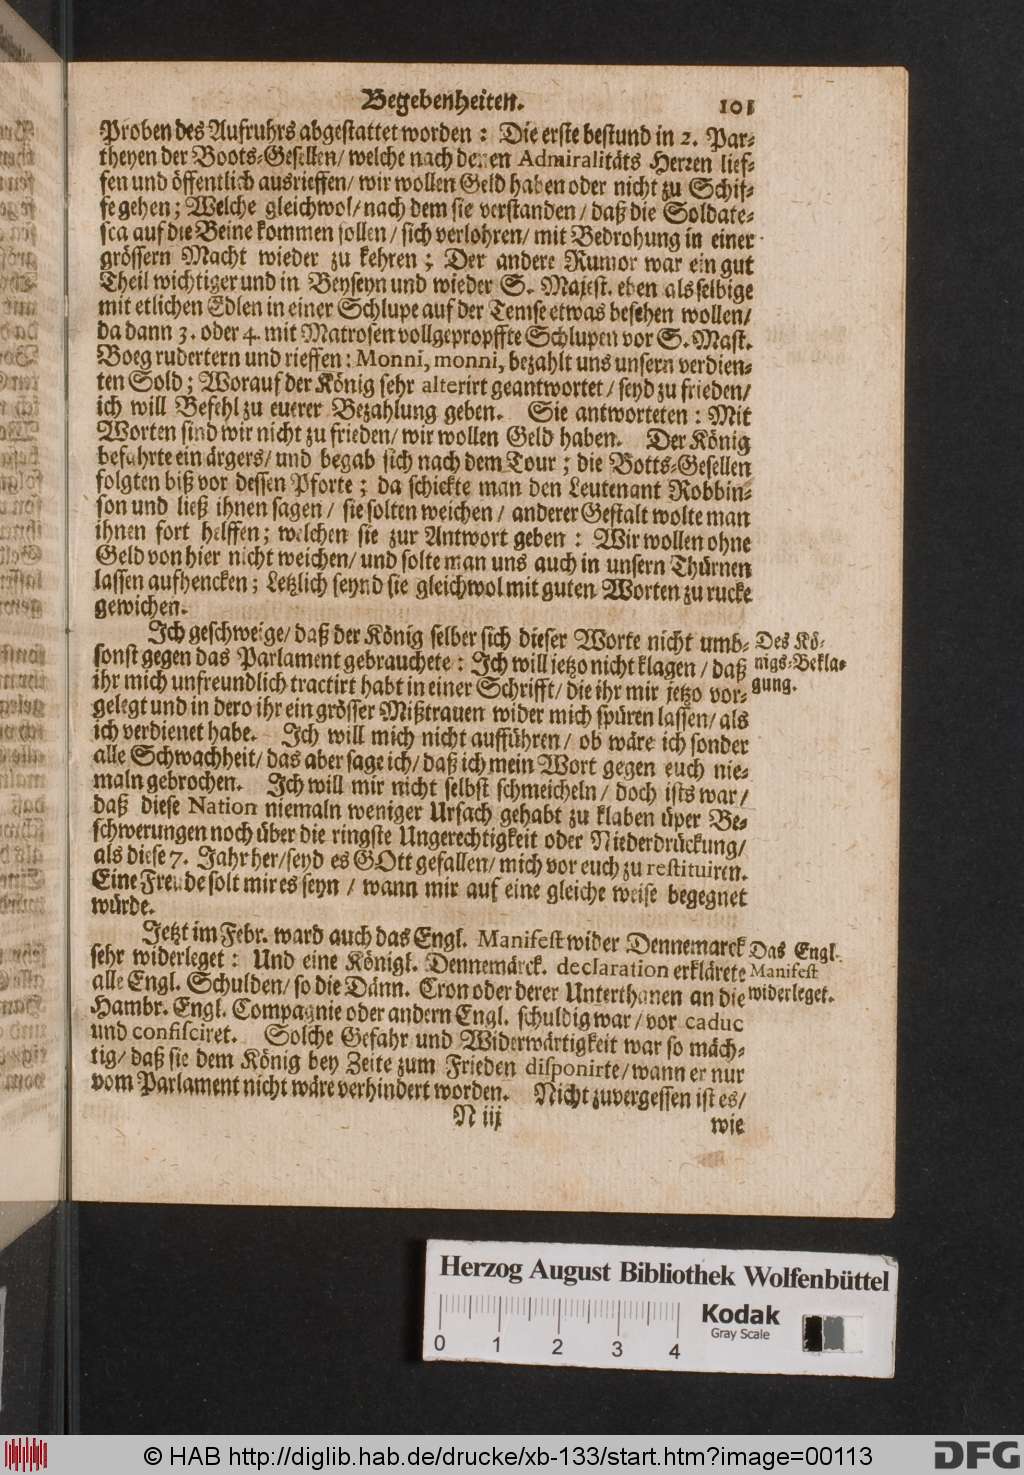 Begebenheiten. 101
Proben des Aufruhrs abgestattet worden: Die erste bestund in 2. Par-
theyen der Boots-Gesellen/ welche nach denen Admiralitäts Herren lief-
fen und öffentlich ausrieffen/ wir wollen Geld haben oder nicht zu Schif-
fe gehen; Welche gleichwol/ nach dem sie verstanden/ daß die Soldate-
sca auf die Beine kommen sollen/ sich verlohren/ mit Bedrohung in einer
grössern Macht wieder zu kehren; Der andere Rumor war ein gut
Theil wichtiger und in Beyseyn und wieder S. Majest. eben als selbige
mit etlichen Edlen in einer Schlupe auf der Temse etwas besehen wollen/
da dann 3. oder 4. mit Matrosen vollgepropffte Schlupen vor S. Mast.
Boeg rudertern und rieffen: Monni, monni, bezahlt uns unsern verdien-
ten Sold; Worauf der König sehr alterirt geantwortet/ seyd zu frieden/
ich will Befehl zu euerer Bezahlung geben. Sie antworteten: Mit
Worten sind wir nicht zu frieden/ wir wollen Geld haben. Der König
befahrte ein ärgers/ und begab sich nach dem Tour; die Botts-Gesellen
folgten biß vor dessen Pforte; da schickte man den Leutenant Robbin-
son und ließ ihnen sagen/ sie solten weichen/ anderer Gestalt wolte man
ihnen fort helffen; welchen sie zur Antwort geben: Wir wollen ohne
Geld von hier nicht weichen/ und solte man uns auch in unsern Thürnen
lassen aufhencken; Letzlich seynd sie gleichwol mit guten Worten zu rucke
gewichen.
Ich geschweige/ daß der König selber sich dieser Worte nicht umb-
sonst gegen das Parlament gebrauchete: Ich will jetzo nicht klagen/ daß
ihr mich unfreundlich tractirt habt in einer Schrifft/ die ihr mir jetzo vor-
gelegt und in dero ihr ein grösser Mißtrauen wider mich spüren lassen/ als
ich verdienet habe. Ich will mich nicht aufführen/ ob wäre ich sonder
alle Schwachheit/ das aber sage ich/ daß ich mein Wort gegen euch nie-
maln gebrochen. Ich will mir nicht selbst schmeicheln/ doch ists war/
daß diese Nation niemaln weniger Ursach gehabt zu klaben üper Be-
schwerungen noch über die ringste Ungerechtigkeit oder Niederdrückung/
als diese 7. Jahr her/ seyd es GOtt gefallen/ mich vor euch zu restituiren.
Eine Freude solt mir es seyn/ wann mir auf eine gleiche weise begegnet
würde.
Des Kö-
nigs-Bekla-
gung.
Jetzt im Febr. ward auch das Engl. Manifest wider Dennemarck
sehr widerleget: Und eine Königl. Dennemärck. declaration erklärete
alle Engl. Schulden/ so die Dänn. Cron oder derer Unterthanen an die
Hambr. Engl. Compagnie oder andern Engl. schuldig war/ vor caduc
und confisciret. Solche Gefahr und Widerwärtigkeit war so mäch-
tig/ daß sie dem König bey Zeite zum Frieden disponirte/ wann er nur
vom Parlament nicht wäre verhindert worden. Nicht zuvergessen ist es/
Das Engl.
Manifest
widerleget.
N iij
wie
Herzog August Bibliothek Wolfenbüttel
0 1 2 3 4
Kodak
Gray Scale
© HAB http://diglib.hab.de/drucke/xb-133/start.htm?image=00113
DFG